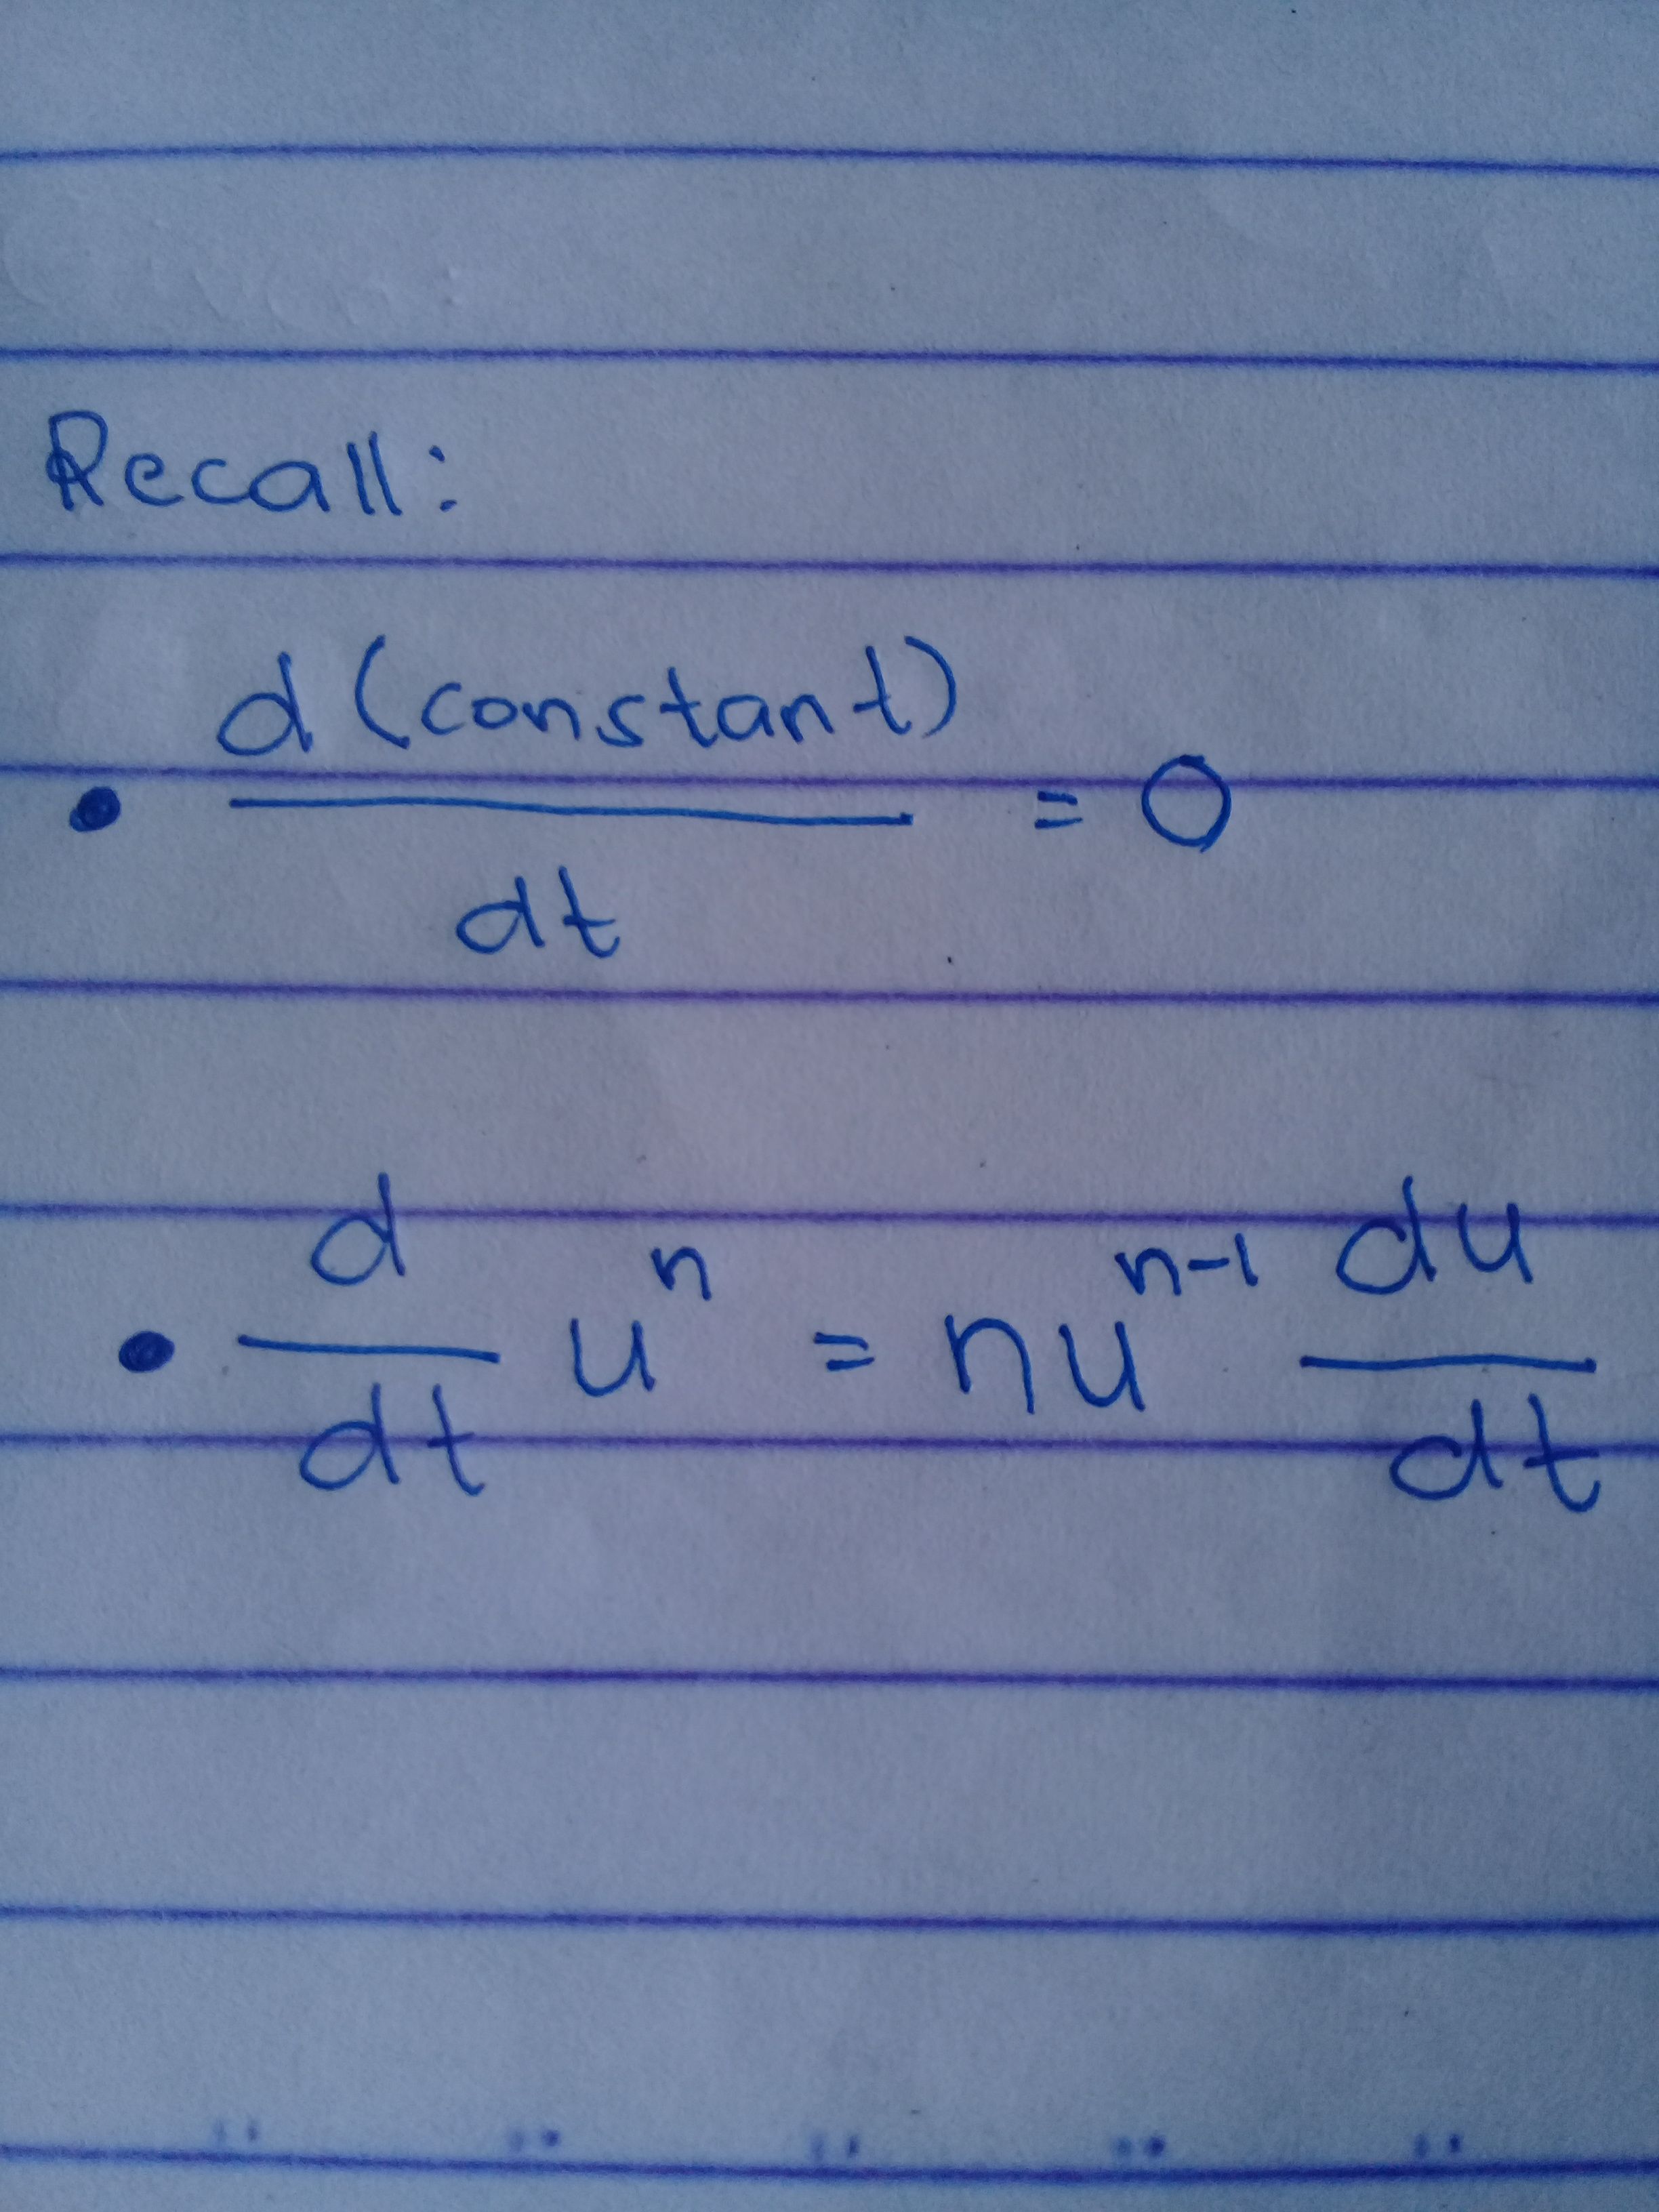 Recall:
• d(constant)/dt = 0
• d/dt u^n = nu^(n-1) du/dt